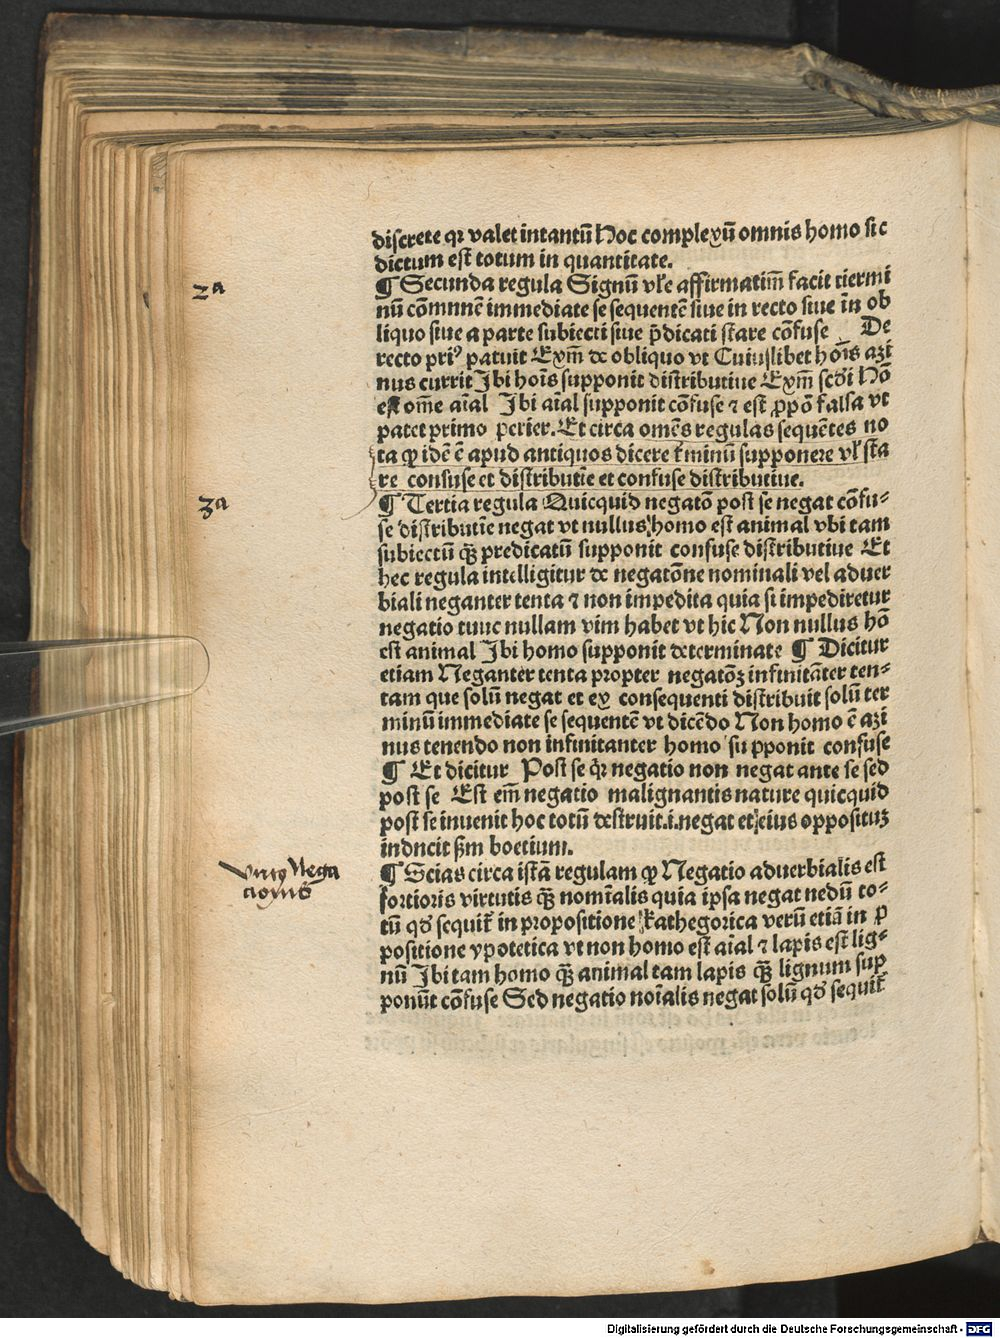 discrete qꝛ valet intantū Hoc complexū omnis homo sic
dictum est totum in quantitate.
2ᵃ
¶ Secunda regula Signū vľe affirmatiuū facit ttermi
nū cōmnnē immediate se sequentē siue in recto siue in ob
liquo siue a parte subiecti siue p̄dicati stare cōfuse De
recto priꝰ patuit Exm̄ de obliquo vt Cuiuslibet hoīs azi
nus currit Ibi hoīs supponit distributiue Exm̄ scďi Hō
est om̄e aīal Ibi aīal supponit cōfuse ⁊ est ꝓpō falsa vt
patet primo perier. Et circa omēs regulas sequētes no
ta ꝙ idē ē apud antiquos dicere ťminū supponere vľ sta
re confuse et distributīe et confuse distributiue.
3ᵃ
¶ Tertia regula Quicquid negatō post se negat cōfu⸗
se distributīe negat vt nullus homo est animal vbi tam
subiectū q̄ꝫ predicatū supponit confuse distributiue Et
hec regula intelligitur de negatōne nominali vel aduer
biali neganter tenta ⁊ non impedita quia si impediretur
negatio tuuc nullam vim habet vt hic Non nullus hō
est animal Ibi homo supponit determinate ¶ Dicitur
etiam Neganter tenta propter negatōꝫ infinitāter ten⸗
tam que solū negat et ex consequenti distribuit solū ter
minū immediate se sequentē vt dicēdo Non homo ē azi
nus tenendo non infinitanter homo su pponit confuse
¶ Et dicitur Post se qꝛ negatio non negat ante se sed
post se Est em̄ negatio malignantis nature quicquid
post se inuenit hoc totū destruit.i.negat et eius opposituꝫ
indncit ẜm boetium.
virtꝰ Nega
cionis
¶ Scias circa istā regulam ꝙ Negatio aduerbialis est
fortioris virtutis q̄ꝫ nomīalis quia ipsa negat nedū to⸗
tū qď sequiť in propositione kathegorica verū etiā in ꝓ
positione ypotetica vt non homo est aīal ⁊ lapis est lig⸗
nū Ibi tam homo q̄ꝫ animal tam lapis q̄ꝫ lignum sup
ponūt cōfuse Sed negatio noīalis negat solū qď sequiť
Digitalisierung gefördert durch die Deutsche Forschungsgemeinschaft - DFG